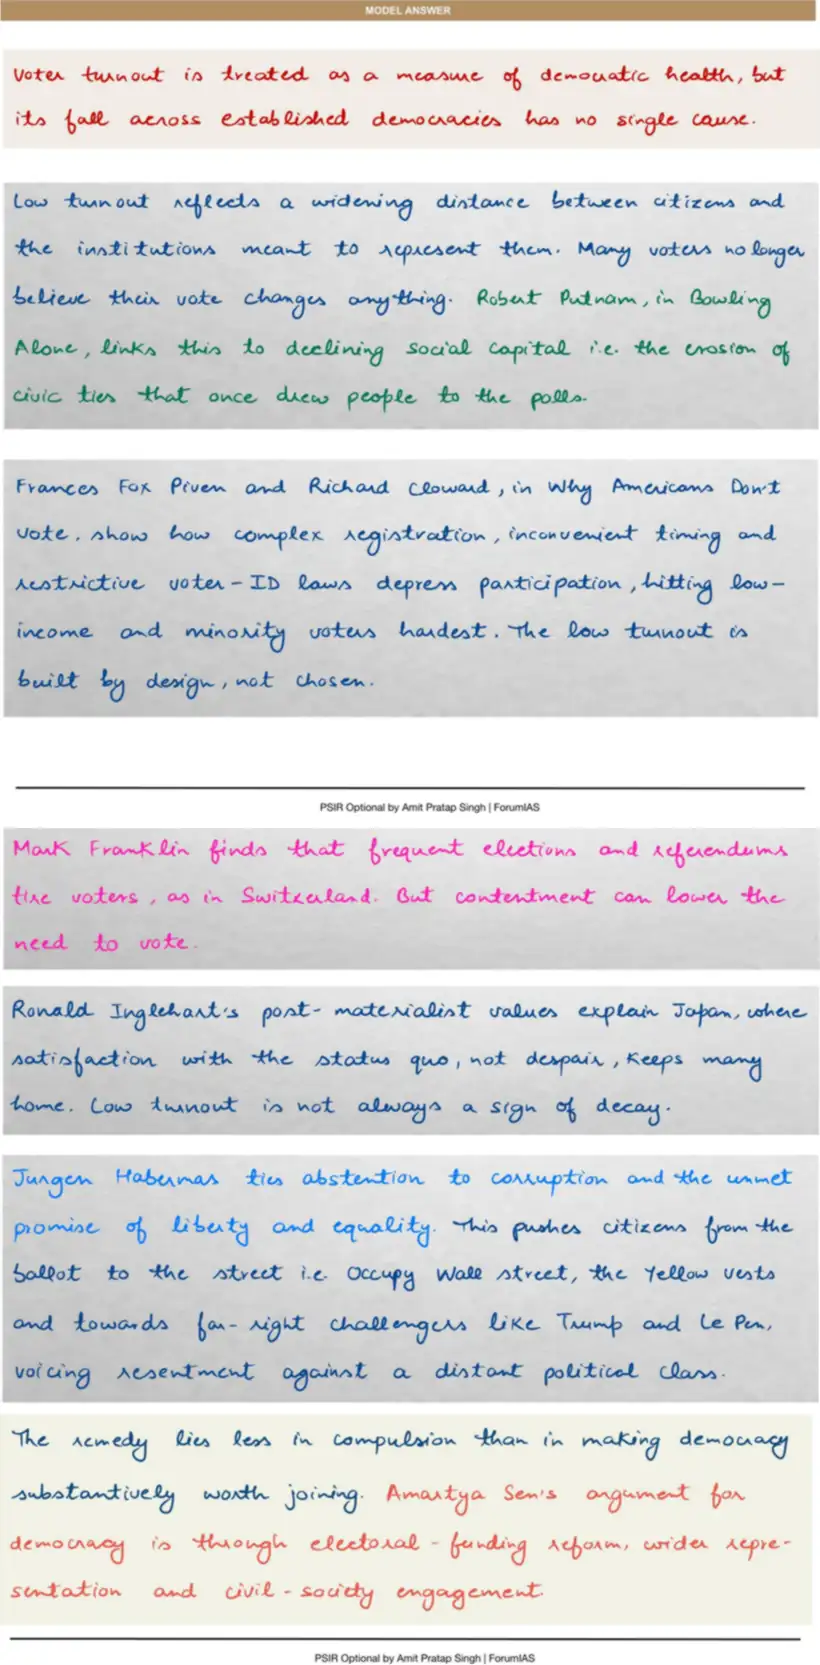 MODEL ANSWER
Voter turnout is treated as a measure of democratic health, but
its fall across established democracies has no single cause.
Low turnout reflects a widening distance between citizens and
the institutions meant to represent them. Many voters no longer
believe their vote changes anything. Robert Putnam, in Bowling
Alone, links this to declining social capital i.e. the erosion of
civic ties that once drew people to the polls.
Frances Fox Piven and Richard Cloward, in Why Americans Don't
Vote, show how complex registration, inconvenient timing and
restrictive voter-ID laws depress participation, hitting low-
income and minority voters hardest. The low turnout is
built by design, not chosen.
PSIR Optional by Amit Pratap Singh | ForumIAS
Mark Franklin finds that frequent elections and referendums
tire voters, as in Switzerland. But contentment can lower the
need to vote.
Ronald Inglehart's post-materialist values explain Japan, where
satisfaction with the status quo, not despair, keeps many
home. Low turnout is not always a sign of decay.
Jurgen Habermas ties abstention to corruption and the unmet
promise of liberty and equality. This pushes citizens from the
ballot to the street i.e. Occupy Wall street, the Yellow vests
and towards far-right challengers like Trump and Le Pen,
voicing resentment against a distant political class.
The remedy lies less in compulsion than in making democracy
substantively worth joining. Amartya Sen's argument for
democracy is through electoral-funding reform, wider repre-
sentation and civil-society engagement.
PSIR Optional by Amit Pratap Singh | ForumIAS